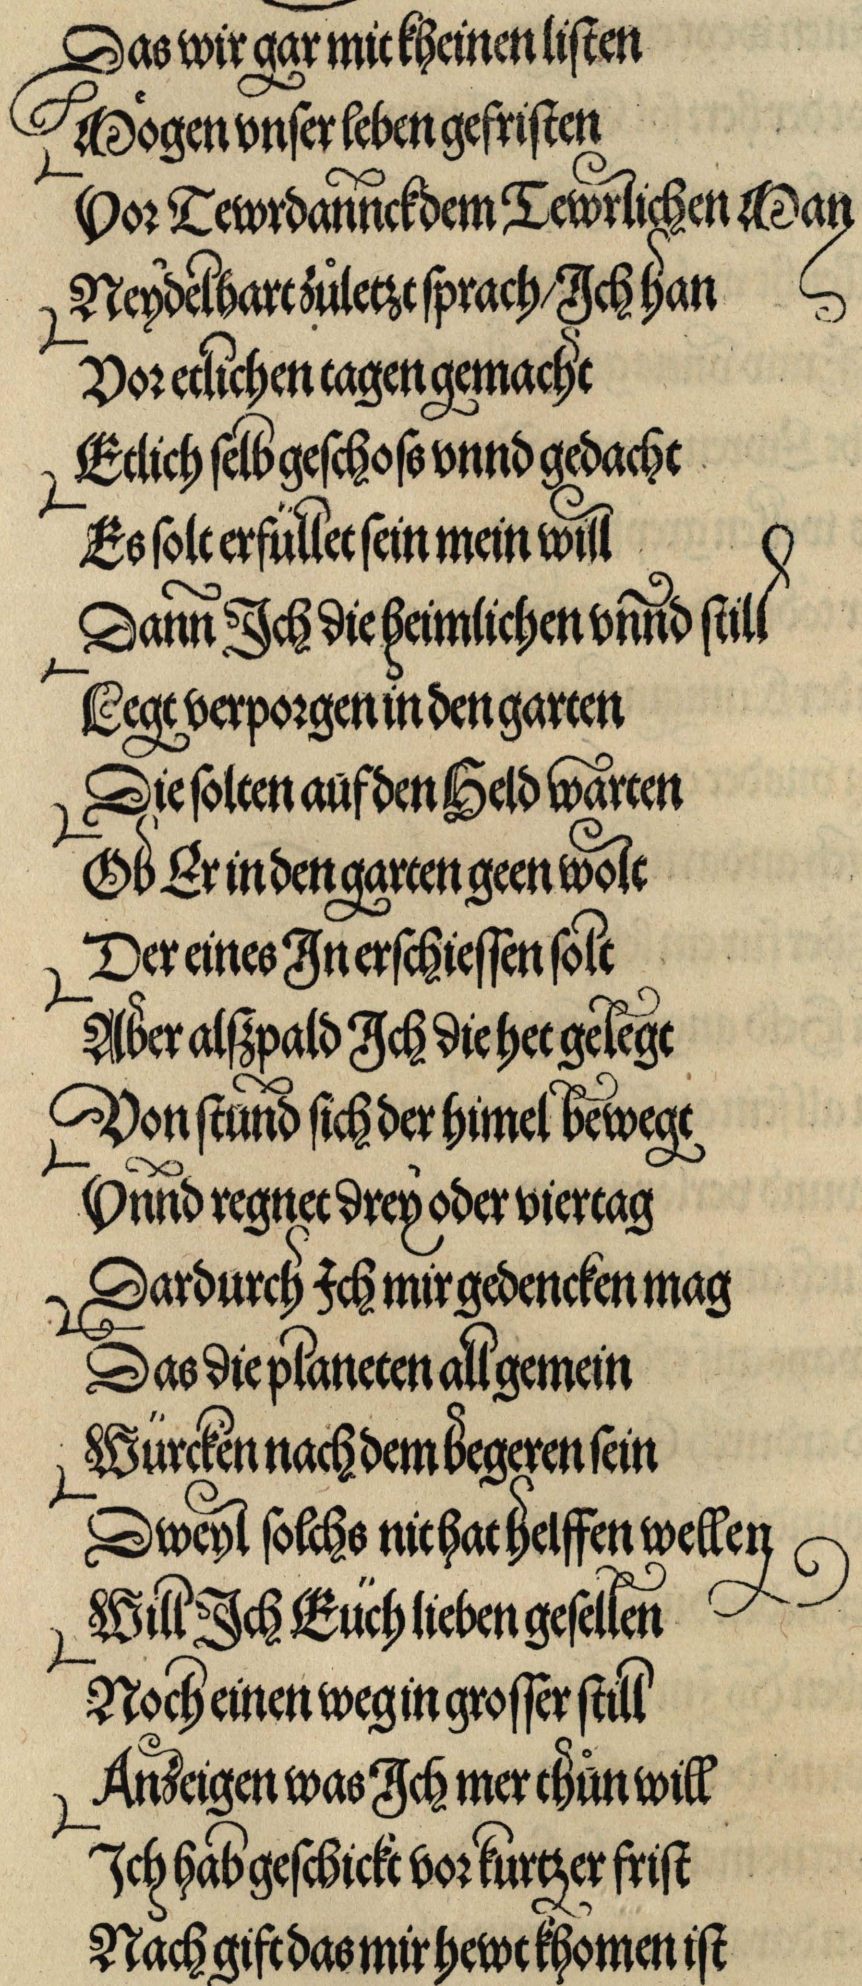 Das wir gar mit kheinen listen
Mögen vnser leben gefristen
Vor Tewrdannck dem Tewrlichen Man
Neydelhart zůletzt sprach/Ich han
Vor etlichen tagen gemacht
Etlich selb geschoss vnnd gedacht
Es solt erfüllet sein mein will
Dann Ich die heimlichen vnnd still
Legt verporgen in den garten
Die solten auf den Held warten
Ob Er in den garten geen wolt
Der eines In erschiessen solt
Aber alszpald Ich die het gelegt
Von stund sich der himel bewegt
Vnnd regnet drey oder vier tag
Dardurch Ich mir gedencken mag
Das die planeten all gemein
Würcken nach dem begeren sein
Dweyl solchs nit hat helffen wellen
Will Ich Euch lieben gesellen
Noch einen weg in grosser still
Anzeigen was Ich mer thůn will
Ich hab geschickt vor kurtzer frist
Nach gift das mir hewt khomen ist